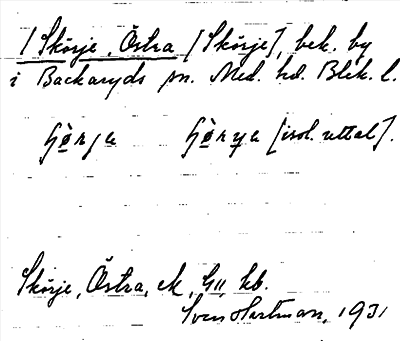 1 Skörje, Östra [Skörje], bek. by
i Backaryds sn. Med. hd. Blek. l.
[isol. uttal].
Skörje, Östra, ek, kb.
Sven Hartman, 1931